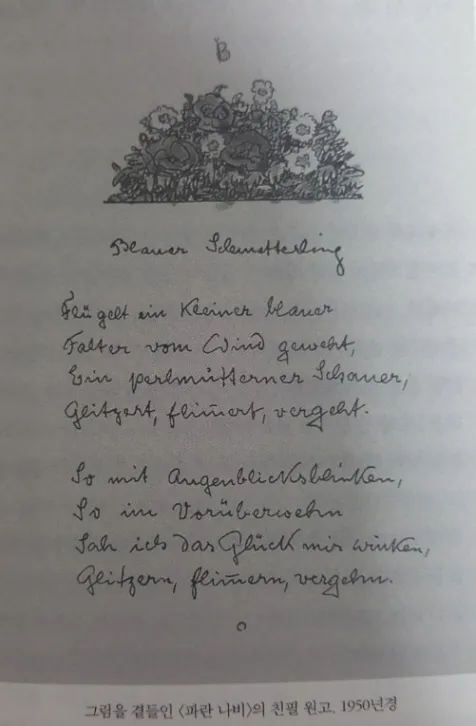 B
Blauer Schmetterling
Flügelt ein kleiner blauer
Falter vom Wind geweht,
Ein perlmutterner Schauer,
Glitzert, flim̅ert, vergeht.
So mit Augenblicksblinken,
So im Vorüberwehn
Sah ich das Glück mir winken,
Glitzern, flim̅ern, vergehn.
그림을 곁들인 〈파란 나비〉의 친필 원고, 1950년경